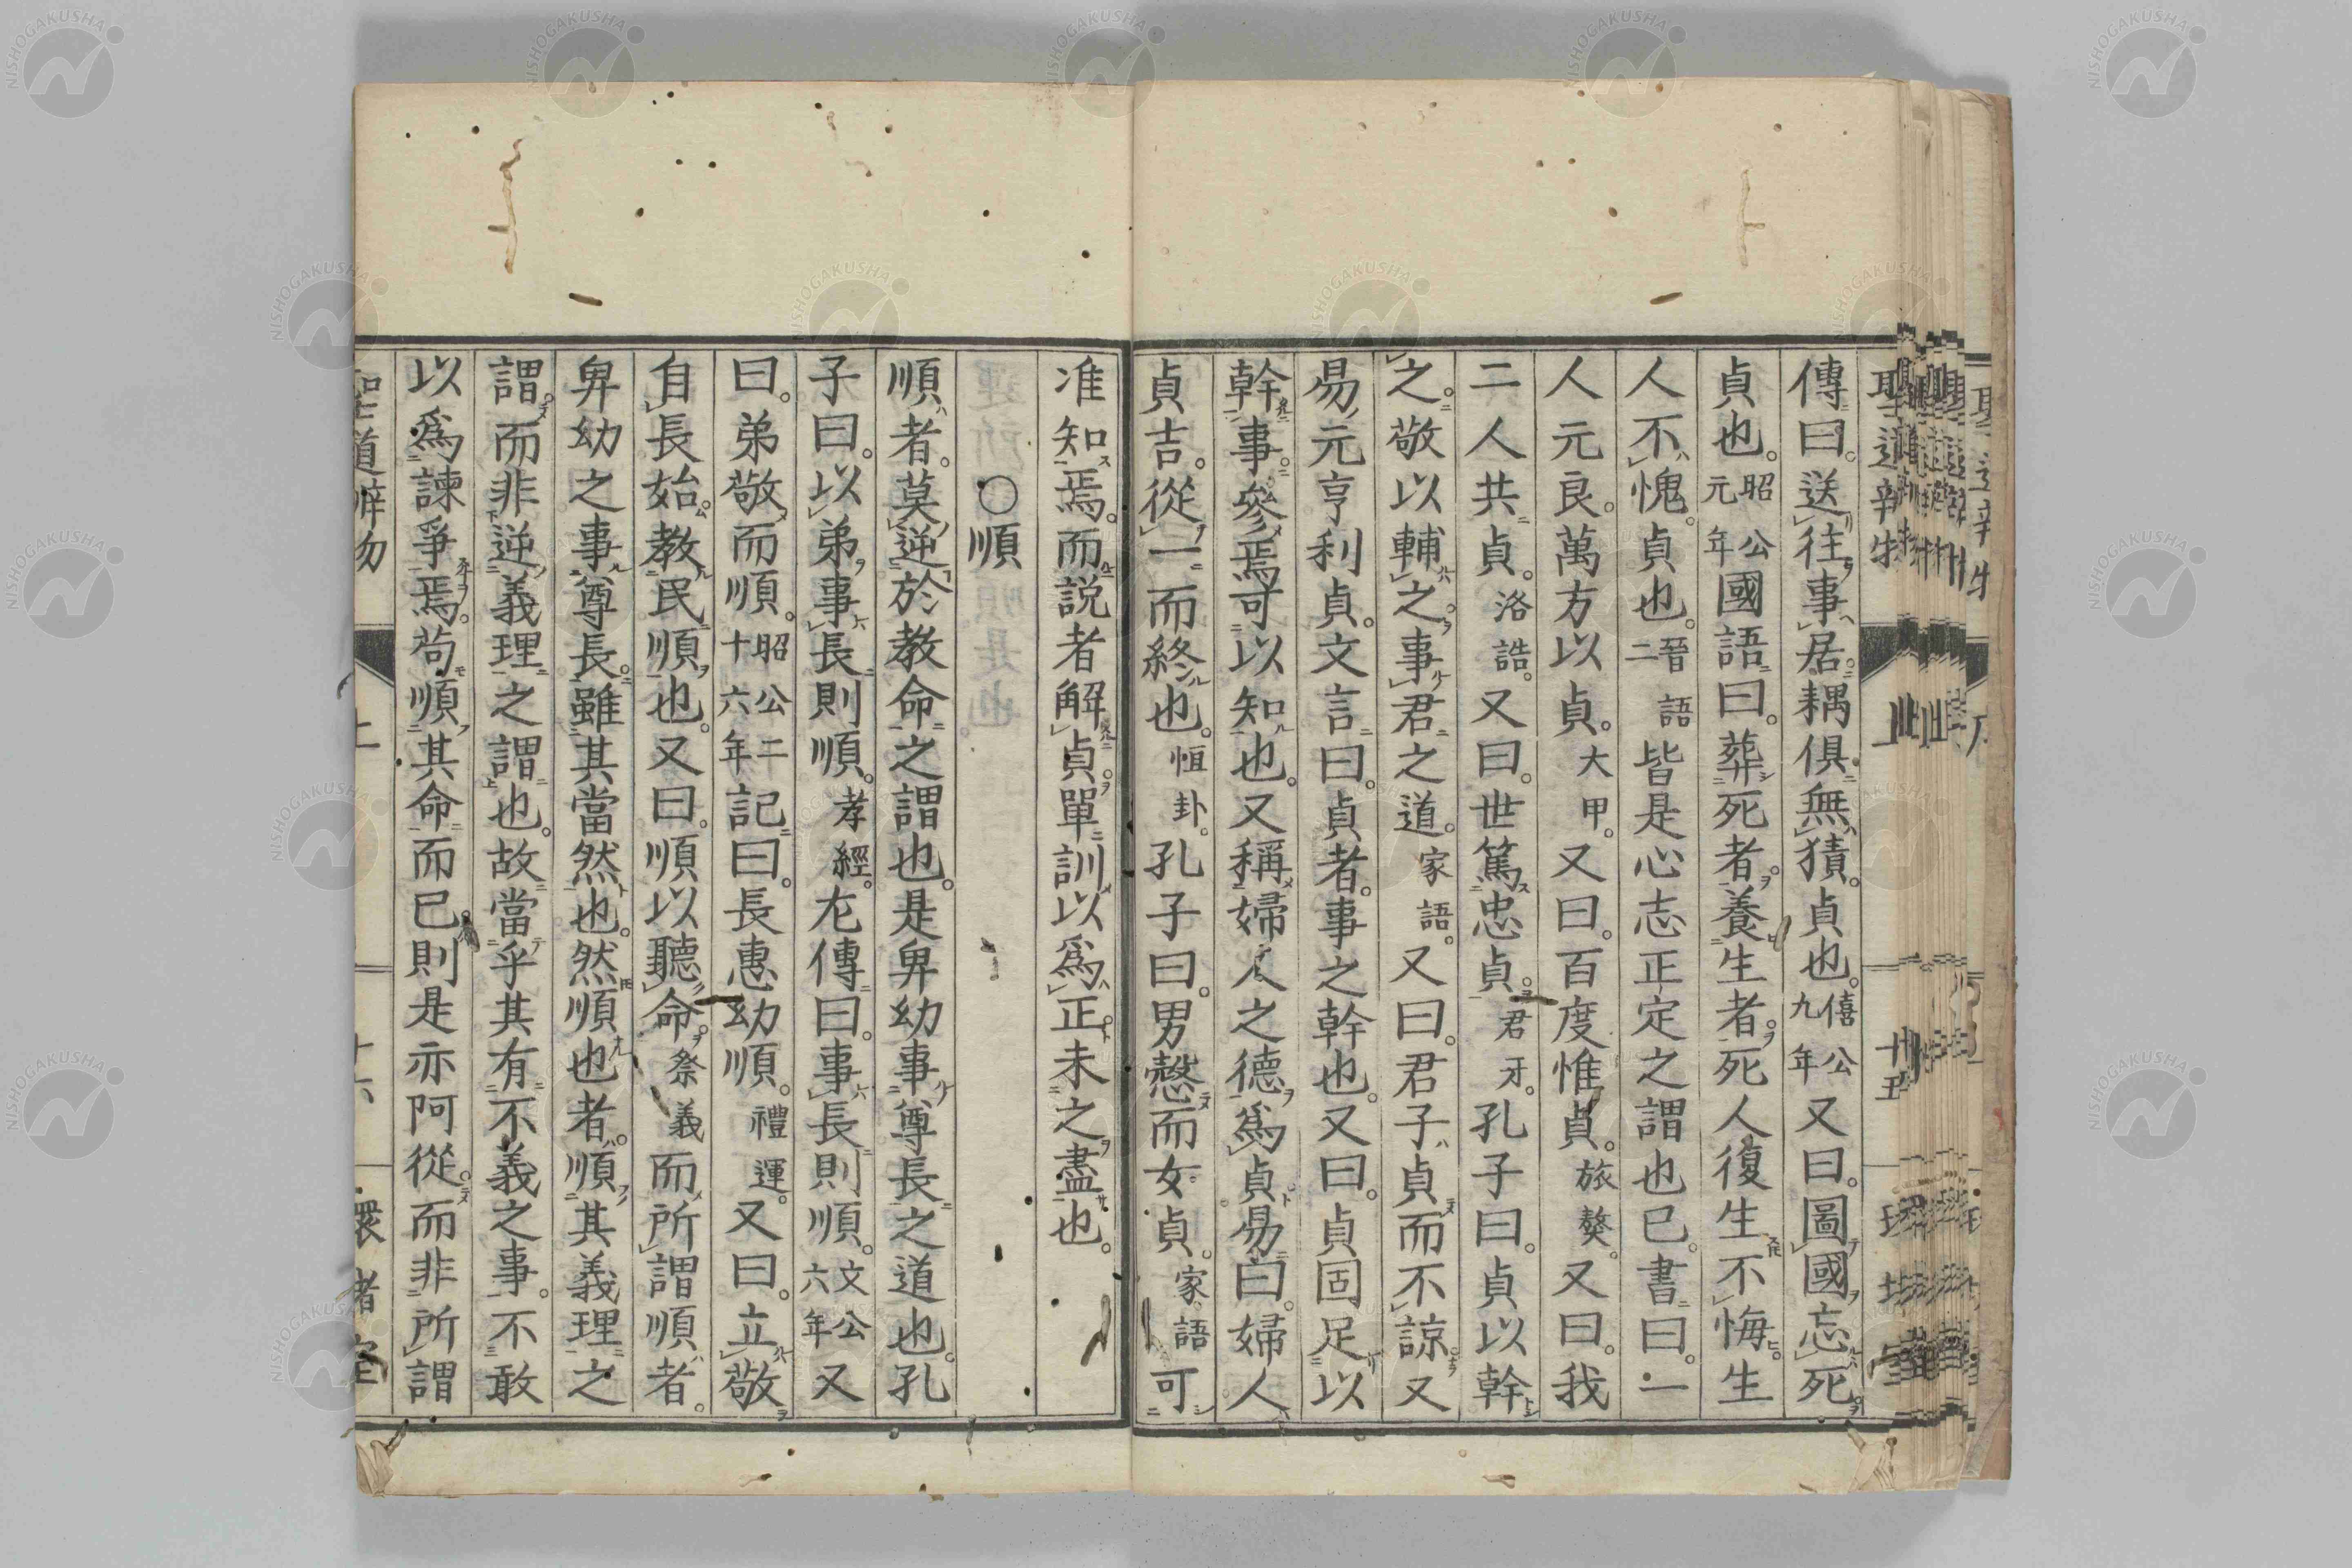 傳曰。送往事居。耦俱無猜。貞也。僖公九年又曰。圖國忘死
貞也。昭公元年國語曰。葬死者。養生者。死人復生不悔。生
人不愧。貞也。晉語二皆是心志正定之謂也已。書曰。一
人元良。萬方以貞。大甲。又曰。百度惟貞。旅獒。又曰。我
二人共貞。洛誥。又曰。世篤忠貞。君牙。孔子曰。貞以幹
之。敬以輔之。事君之道。家語。又曰。君子貞而不諒。又
易元亨利貞。文言曰。貞者。事之幹也。又曰。貞固足以
幹事。參焉可以知也。又稱婦人之德爲貞。易曰。婦人
貞吉。從一而終也。恒卦。孔子曰。男愨而女貞。家語可
准知焉。而説者解貞單訓以爲正。未之盡也。
○順
順者。莫逆於教命之謂也。是卑幼事尊長之道也。孔
子曰。以弟事長則順。孝經。左傳曰。事長則順。文公六年又
曰。弟敬而順。昭公二十六年記曰。長惠幼順。禮運。又曰。立敬
自長始。教民順也。又曰。順以聽命。祭義而所謂順者。
卑幼之事尊長。雖其當然也。然順也者。順其義理之
謂。而非逆義理之謂也。故當乎其有不義之事。不敢
以爲諫爭焉。苟順其命而已。則是亦阿從。而非所謂
聖道辨物
上
十六
環堵室